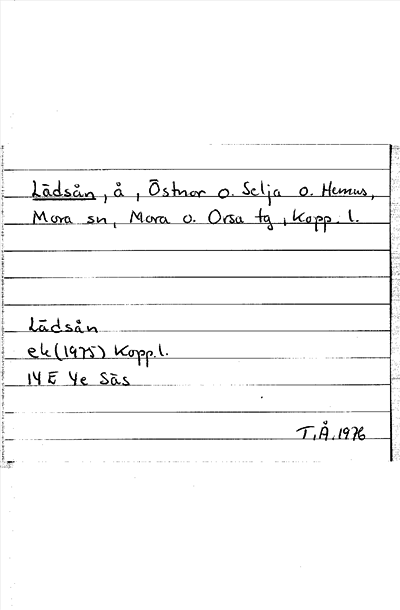 Lädsån, å, Östnor o. Selja o. Hemus,
Mora sn, Mora o. Orsa tg, Kopp. l.
Lädsån
ek (1975) Kopp. l.
14 E 4e Säs
T.Å. 1976